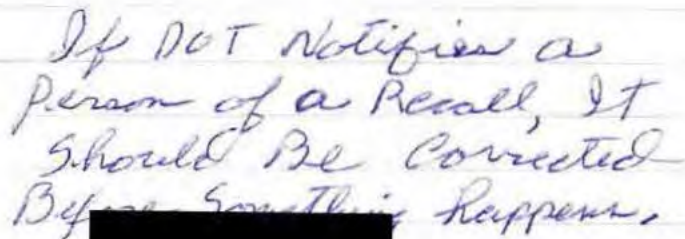 If DOT Notifies a
Person of a Recall, It
Should Be Corrected
Before Something happens.